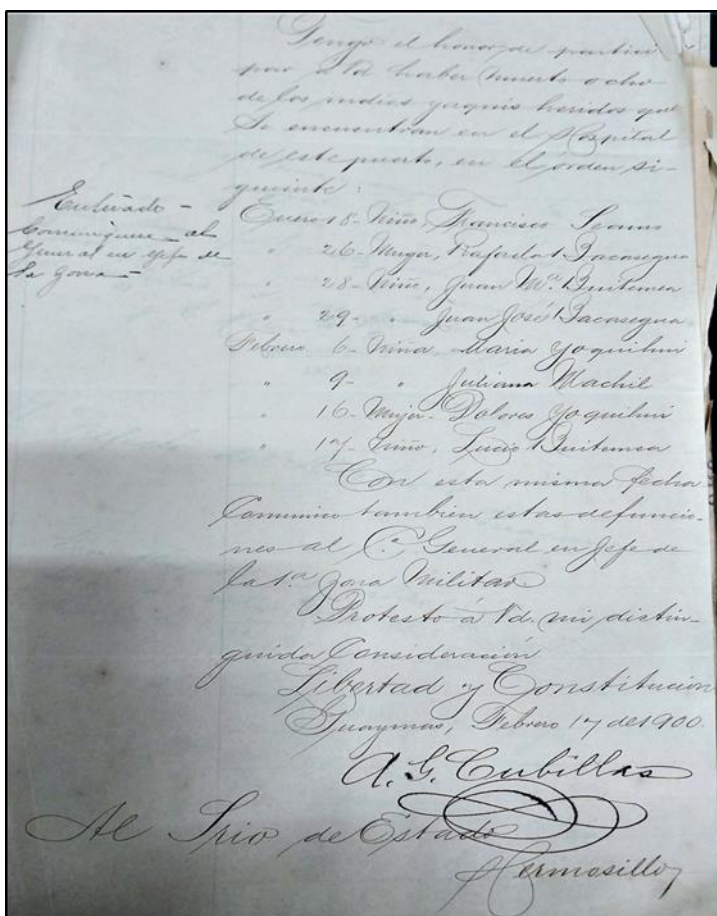 Tengo el honor de partici
par a Vd haber muerto ocho
de los indios yaquis heridos que
se encuentran en el Hospital
de este puerto, en el órden si-
guiente:
Enterado -
Comuníquese al
General en Jefe de
la zona -
Enero 18 - Niño, Francisco
" 26 - Muger, Rafaela Bacasegua
" 28 - Niño, Juan Ma. Buitemea
" 29 - " Juan José Bacasegua
Febrero 6 - Niña, Maria Yoquihui
" 9 - " Juliana Machil
" 16 - Mujer - Dolores Yoquihui
" 17 - Niño, Lucio Buitemea
Con esta misma fecha
Comunico tambien estas defuncio-
nes al C. General en Jefe de
la 1a Zona Militar
Protesto á Vd. mi distin-
guida Consideración
Libertad y Constitución
Guaymas, Febrero 17 de 1900.
A. G. Cubillas
Al Srio de Estado
Hermosillo